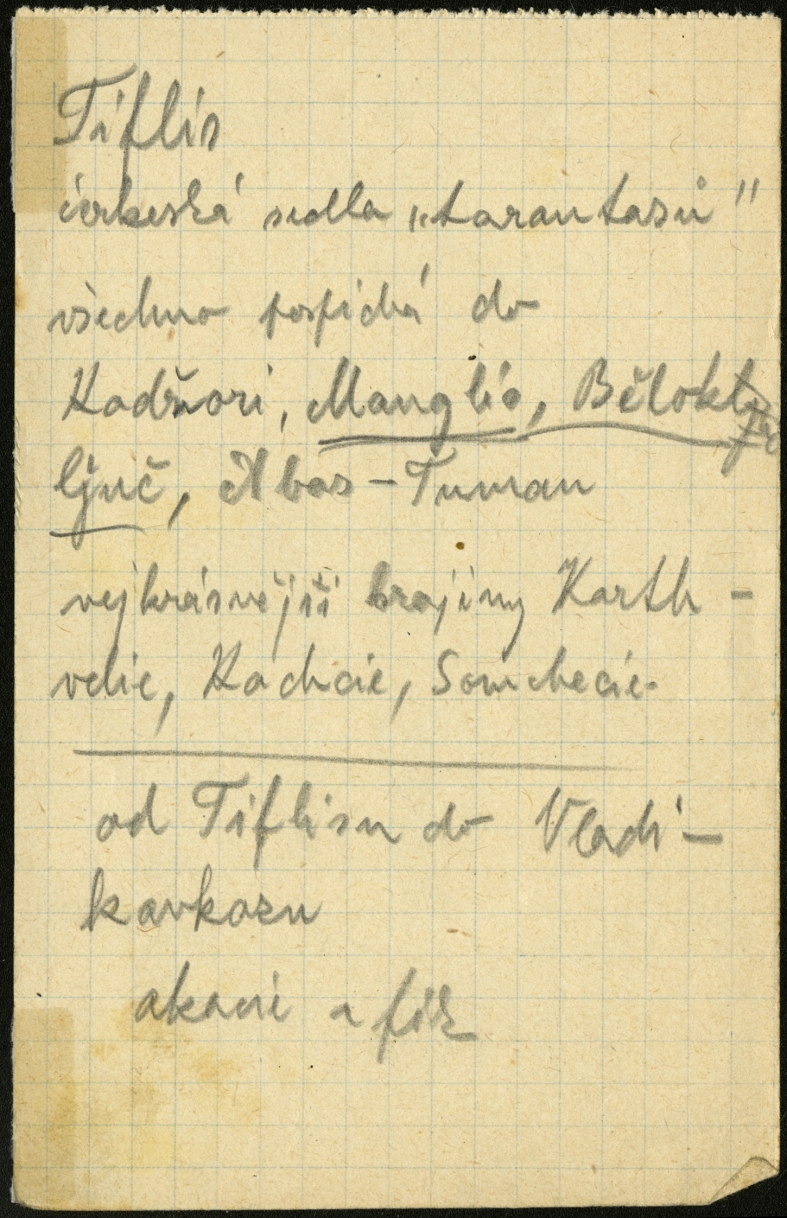 Tiflis
čerkeská sedla „tarantasů"
všechno pospíchá do
Kadžori, Manglis, Bělokl
ljuč, Abas-Tuman
nejkrásnější krajiny Karth-
velie, Kachcie, Somchecie.
od Tiflisu do Vladi-
kavkazu
akacie a fík